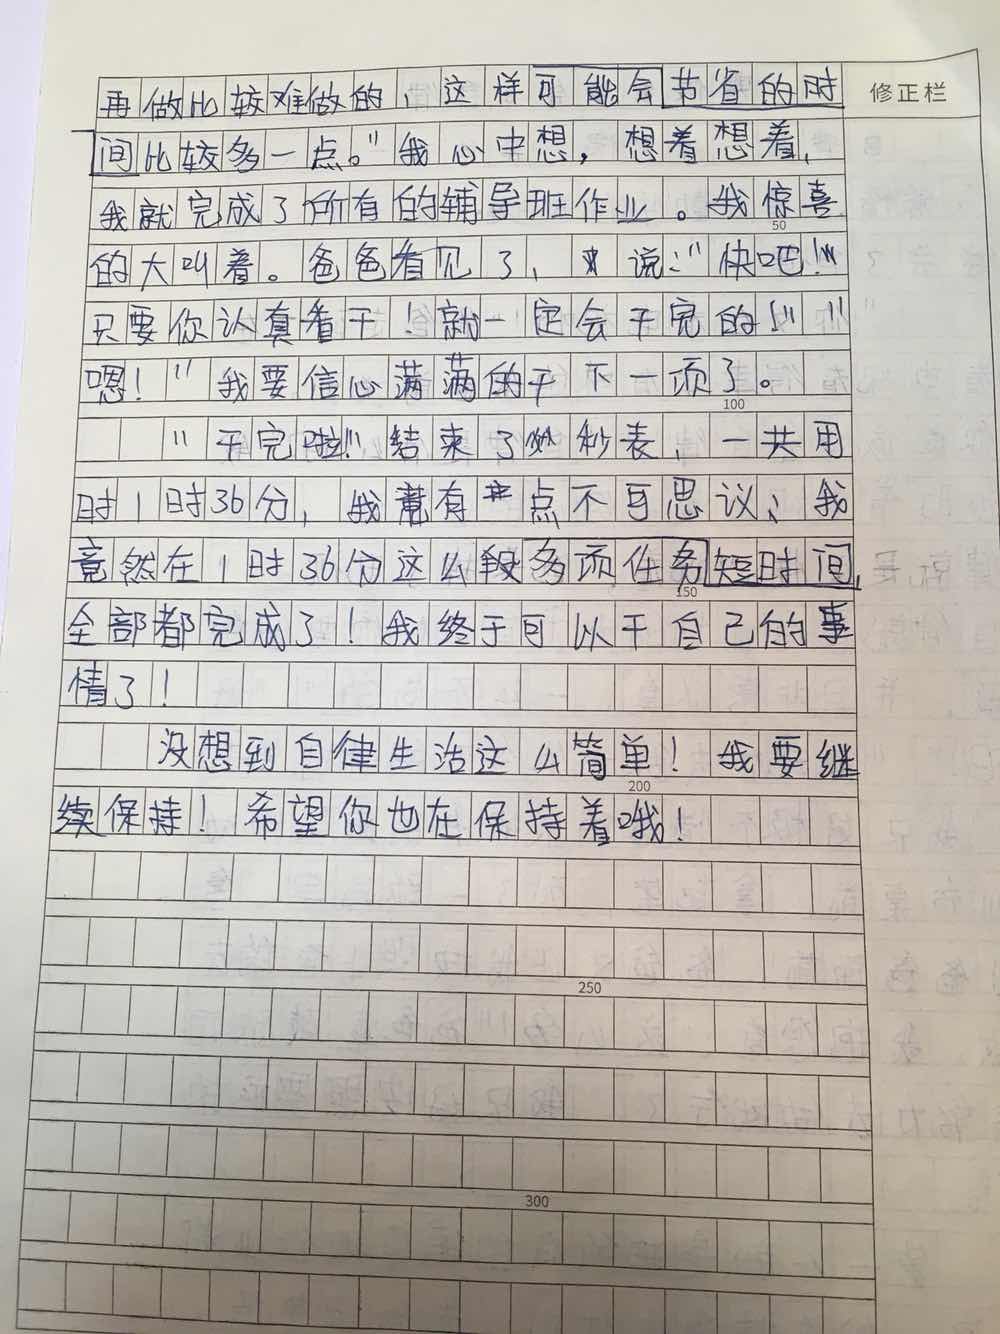 再做比较难做的，这样可能会节省的时
修正栏
间比较多一点。"我心中想，想着想着，
我就完成了所有的辅导班作业。我惊喜
50
的大叫着。爸爸看见了，说："快吧！"
只要你认真看干！就一定会干完的！""
嗯！"我要信心满满的干下一项了。
100
"干完啦！"结束了秒表，一共用
时1时36分，我有点不可思议、我
竟然在1时36分这么段多项任务短时间，
150
全部都完成了！我终于可以干自己的事
情了！
没想到自律生活这么简单！我要继
200
续保持！希望你也在保持着哦！
250
300